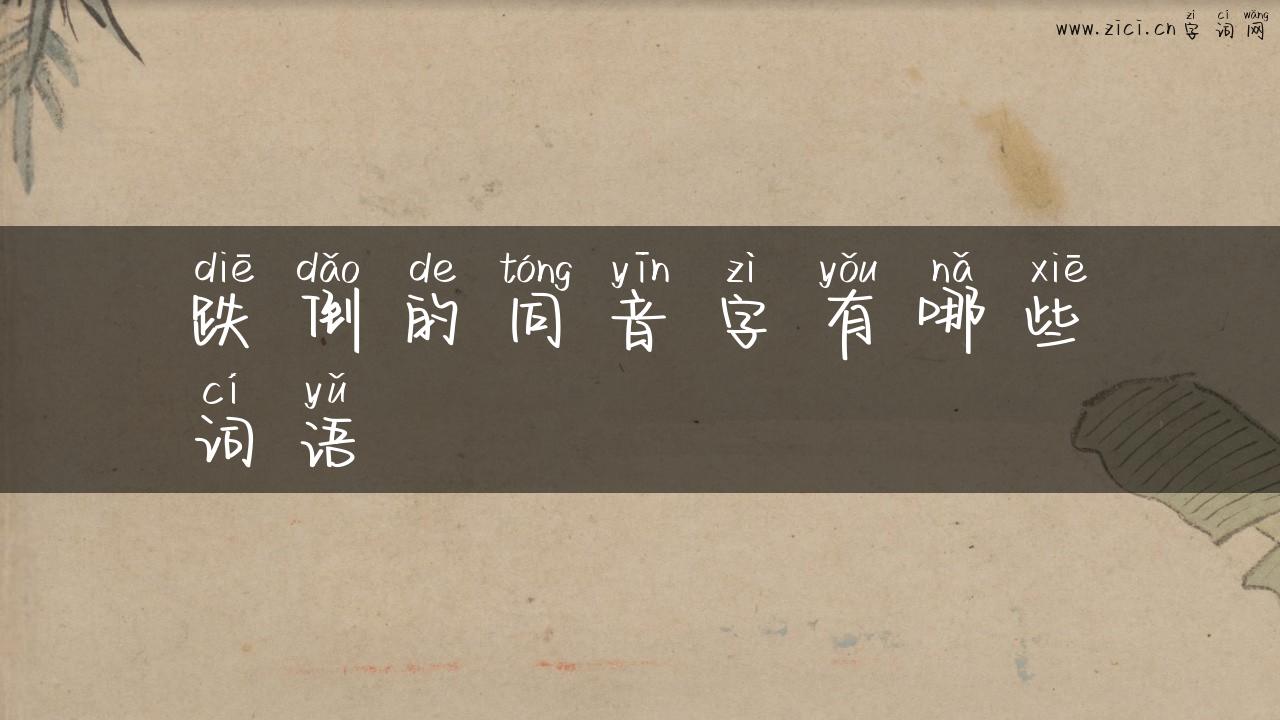 zì cí wǎng
www.zici.cn 字 词 网
diē dǎo de tóng yīn zì yǒu nǎ xiē
跌 倒 的 同 音 字 有 哪 些
cí yǔ
词 语